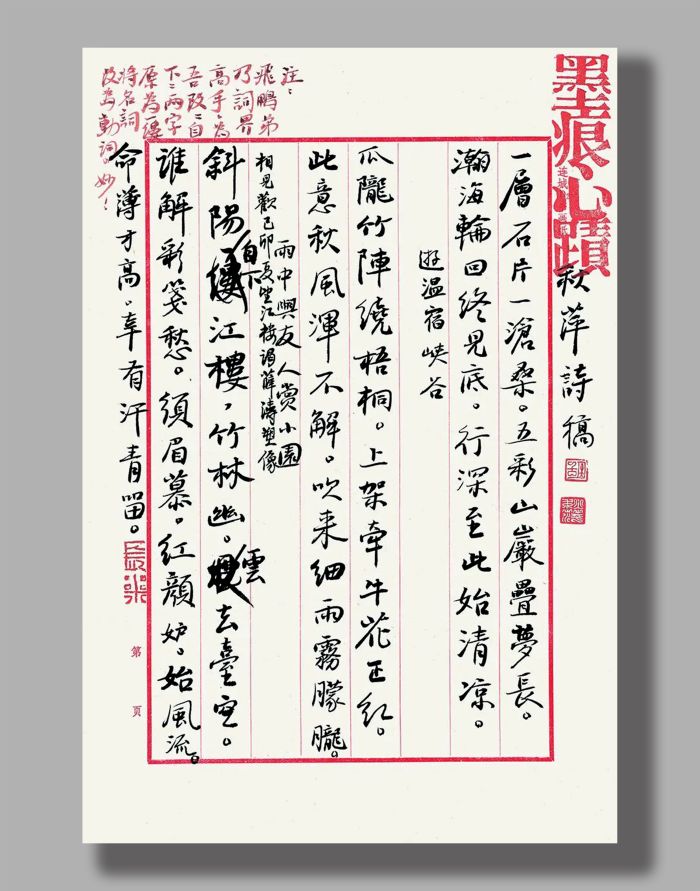 墨痕心蹟
秋萍詩稿
一層石片一滄桑。五彩山巖疊夢長。
瀚海輪回終見底。行深至此始清凉。
遊温宿峡谷
瓜隴竹陣繞梧桐。上架牽牛花正红。
此意秋風渾不解。吹来细雨霧朦朧。
雨中與友人賞小園
相見歡己卯夏坐江楼谒薛濤塑像
斜陽自下江樓,竹林幽。雲去臺空。
誰解彩箋愁。须眉慕。红颜妒。始風流。
命薄才高。幸有汗青留。
注:
飛鵬弟
乃詞界
高手,為
吾改:自
下:两字
原為一缕
将名詞
改為動詞。妙!
第 頁